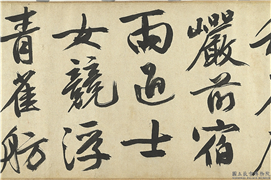 巖前宿
雨過士
女競浮
青雀舫